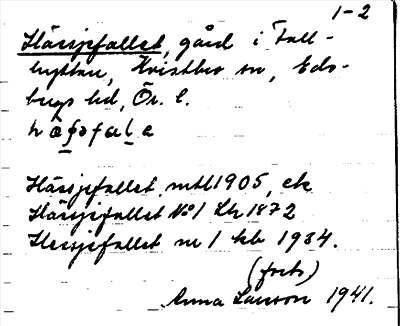 1-2
Härsjefallet, gård i Fall-
hyttan, Kvistbro sn, Eds-
bergs hd, Ör. l.
Härsjefallet mtl 1905, ek
Härsjefallet No 1 Lh 1872
Hersjefallet nr 1 kb 1934.
(forts)
Anna Larsson 1941.